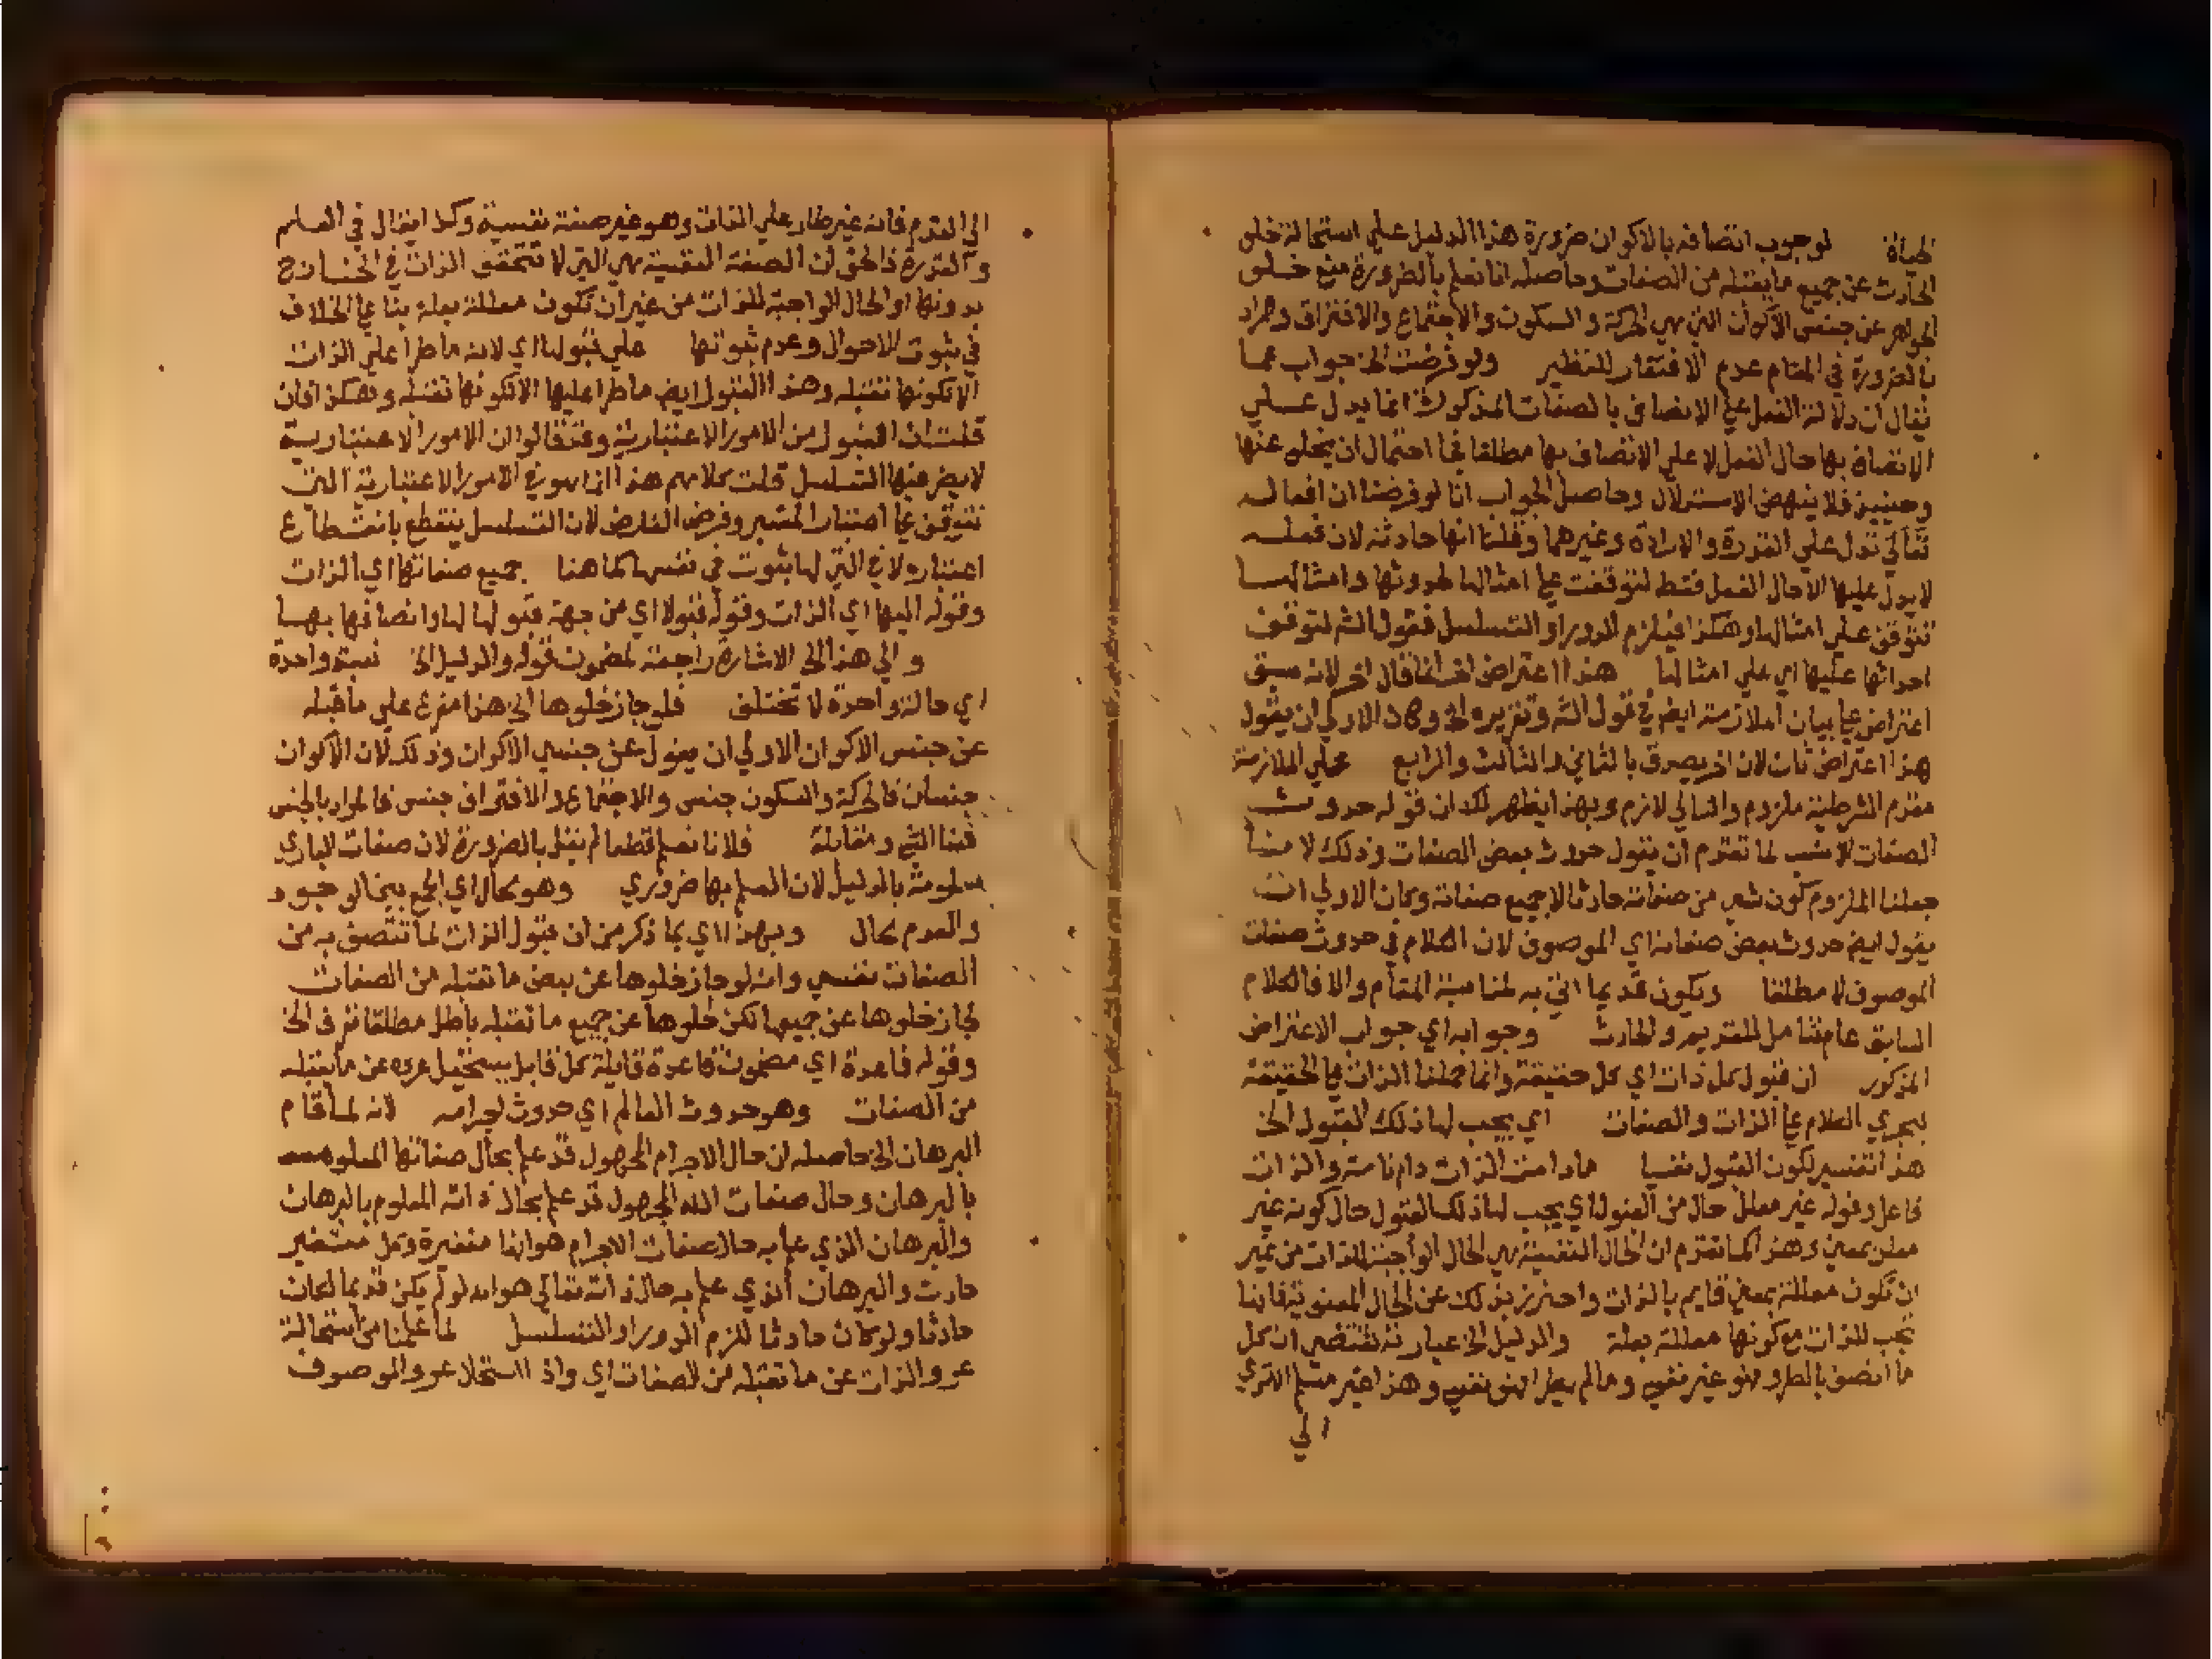 الحياة لوجوب اتصافه بالاكوان ضرورة هذا الدليل علي استحالة خلو
الحادث عن جميع ما يقبله من الصفات وحاصله انا نعلم بالضرورة منع خلو
الجواهر عن جنس الاكوان التي هي الحركة والسكون والاجتماع والافتراق ومراد
بالضرورة في المقام عدم الافتقار للنظر ولو فرضت الخ جواب عما
يقال ان دلالة الفعل علي الاتصاف بالصفات المذكورة انما يدل علي
الاتصاف بها حال الفعل لا علي الاتصاف بها مطلقا فاحتمال ان يخلو عنها
وحينيذ فلا ينهض الاستدلال وحاصل الجواب انا لو فرضنا ان افعاله
تعالي تدل علي القدرة والارادة وغيرهما وقلنا انها حادثة لان فعله
لا يدل عليها الا حال الفعل فقط لتوقفت علي امثالها لحدوثها وامثالها
تتوقف علي امثالها وهكذا فيلزم الدور او التسلسل فقول الشه لتوقف
احداثها عليها اي علي امثالها هذا اعتراض اخر انما قال اخر لانه سبق
اعتراض علي بيان الملازمة ايض في قول الشه وتقريره الخ وكان الاولي ان يقول
هذا اعتراض ثان لان اخر يصدق بالثاني والثالث والرابع علي الملازمة
مقدم الشرطية ملزوم والتالي لازم وبهذا يظهر لك ان قوله حدوث
الصفات لا يناسب لما تقدم ان يقول حدوث بعض الصفات وذلك لا منا
جعلنا الملزوم كون شي من صفاته حادثا لا جميع صفاته وكان الاولي ان
يقول ايض حدوث بعض صفاته اي الموصوف لان الكلام في حدوث صفات
الموصوف لا مطلقا ويكون قديما اتي به لمناسبة المقام والا فالكلام
السابق عام شامل للقديم والحادث وجوابه اي جواب الاعتراض
المذكور ان قبول كل ذات اي كل حقيقة وانما حملنا الذات علي الحقيقة
ليجري الكلام علي الذات والصفات اي يجب لها ذلك القبول الخ
هذا تفسير لكون القبول نفسيا ما دامت الذات دام تامة والذات
فاعل وقوله غير معلل حال من القبول اي يجب لها ذلك القبول حال كونه غير
معلل بمعني وهذا كما تقدم ان الحال النفسية هي الحال الواجبة للذات من غير
ان تكون معللة بمعني قايم بالذات واحترز بذلك عن الحال المعنوية فانها
تجب للذات مع كونها معللة بعلة والدليل الخ عبارته تقتضي ان كل
ما اتصف بالطرو فهو غير نفسي وما لم يطرا فهو نفسي وهذا غير مسلم التري
الي
الي القدم فانه غير طار علي الذات وهو غير صفة نفسية وكذا يقال في العلم
والقدرة فالحق ان الصفة النفسية هي التي لا تتحقق الذات في الخارج
بدونها او الحال الواجبة للذات من غير ان تكون معللة بعلة بنا علي الخلاف
في ثبوت الاحوال وعدم ثبوتها علي قبولها اي لانه ما طرا علي الذات
الا لكونها تقبله وهذا القبول ايض ما طرا عليها الا لكونها تقبله وهكذا فان
قلت ان القبول من الامور الاعتبارية وقد قالوا ان الامور الاعتبارية
لا يضر فيها التسلسل قلت كلامهم هذا انما هو في الامور الاعتبارية التي
تتوقف علي اعتبار المعتبر وفرض الفارض لان التسلسل ينقطع بانقطاع
اعتباره لا في التي لها ثبوت في نفسها كما هنا جميع صفاتها اي الذات
وقوله اليها اي الذات وقوله قبولا اي من جهة قبولها لها واتصافها بها
والي هذا الخ الاشارة راجعة لمضمون قوله والدليل الخ نسبة واحدة
اي حالة واحدة لا تختلف فلو جاز خلوها الخ هذا مفرع علي ما قبله
عن جنس الاكوان الاولي ان يقول عن جنسي الاكوان وذلك لان الاكوان
جنسان فالحركة والسكون جنس والاجتماع والافتراق جنس فالمراد بالجنس
هنا الشي ومقابله فلانا نعلم قطعا لم يقل بالضرورة لان صفات الباري
معلومة بالدليل لان العلم بها ضروري وهو محال اي الجمع بين الوجود
والعدم محال وبهذا اي بما ذكر من ان قبول الذات لما تتصف به من
الصفات نفسي وانه لو جاز خلوها عن بعض ما تقبله من الصفات
لجاز خلوها عن جميعها لكن خلوها عن جميع ما تقبله باطل مطلقا تعرف الخ
وقوله قاعدة اي مضمون قاعدة قايلة كل قابل يستحيل عروه عن ما يقبله
من الصفات وهو حدوث العالم اي حدوث اجرامه لانه لما قام
البرهان الخ حاصله ان حال الاجرام المجهول قد علم بحال صفاتها المعلومة
بالبرهان وحال صفات الله المجهول قد علم بحال ذاته المعلوم بالبرهان
والبرهان الذي علم به حال صفات الاجرام هو انها متغيرة وكل متغير
حادث والبرهان الذي علم به حال ذاته تعالي هو انه لو لم يكن قديما لكان
حادثا ولو كان حادثا للزم الدور او التسلسل لما علمنا من استحالة
عرو الذات عن ما تقبله من الصفات اي واذا استحال عرو الموصوف